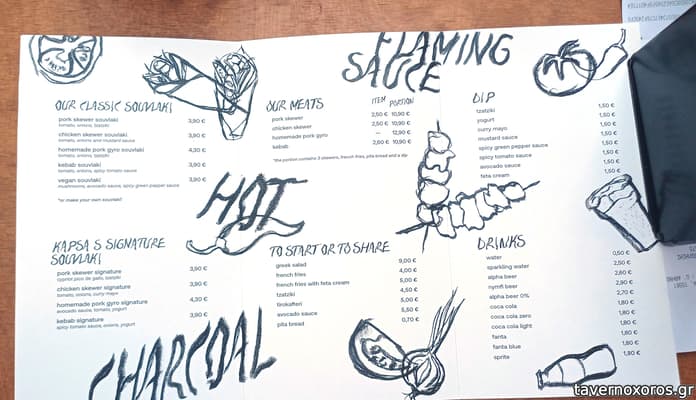 FLAMING
SAUCE
OUR CLASSIC SOUVLAKI
pork skewer souvlaki 3,90 €
tomato, onions, tzatziki
chicken skewer souvlaki 3,90 €
tomato, onions and mustard sauce
homemade pork gyro souvlaki 4,30 €
tomato, onions, tzatziki
kebab souvlaki 3,90 €
tomato, onions, spicy tomato sauce
vegan souvlaki 3,90 €
mushrooms, avocado sauce, spicy green pepper sauce
*or make your own souvlaki
OUR MEATS ITEM PORTION
pork skewer 2,50 € 10,90 €
chicken skewer 2,50 € 10,90 €
homemade pork gyro — 12,90 €
kebab 2,60 € 10,90 €
*the portion contains 3 skewers, french fries, pita bread and a dip
DIP
tzatziki 1,50 €
yogurt 1,50 €
curry mayo 1,50 €
mustard sauce 1,50 €
spicy green pepper sauce 1,50 €
spicy tomato sauce 1,50 €
avocado sauce 1,50 €
feta cream 1,50 €
HOT
KAPSA & SIGNATURE
SOUVLAKI
pork skewer signature 3,90 €
cypriot pico de gallo, tzatziki
chicken skewer signature 3,90 €
tomato, onions, curry mayo
homemade pork gyro signature 4,30 €
avocado sauce, tomato, yogurt
kebab signature 3,90 €
spicy tomato sauce, onions, yogurt
TO START OR TO SHARE
greek salad 9,00 €
french fries 4,00 €
french fries with feta cream 5,00 €
tzatziki 4,50 €
tirokafteri 5,00 €
avocado sauce 5,50 €
pita bread 0,70 €
DRINKS
water 0,50 €
sparkling water 2,50 €
alpha beer 2,60 €
nymfi beer 2,90 €
alpha beer 0% 2,70 €
coca cola 1,80 €
coca cola zero 1,80 €
coca cola light 1,80 €
fanta 1,80 €
fanta blue 1,80 €
sprite 1,80 €
CHARCOAL
tavernoxoros.gr